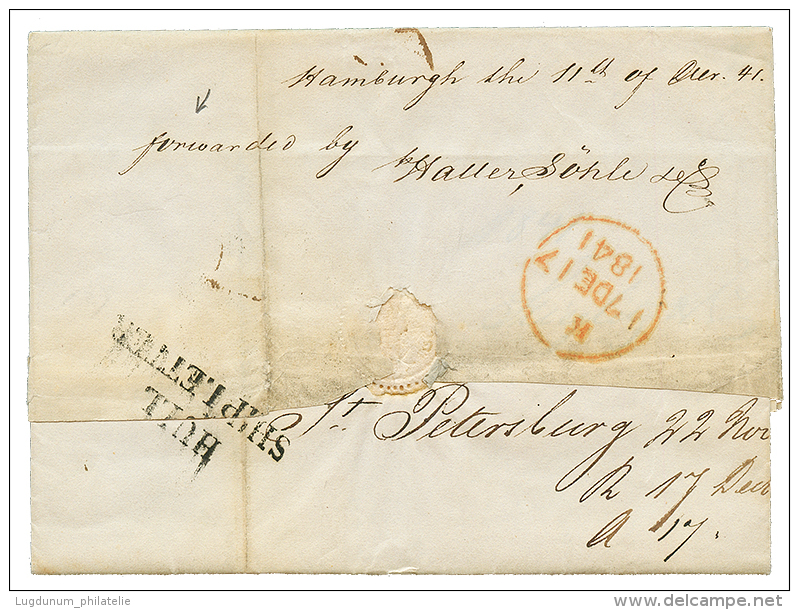 Hamburgh the 11th of Decr. 41.
forwarded by
Haller, Söhle & Co
K
17 DE 17
1841
HULL
SHIP LETTER
St. Petersburg 22 Nov
R 17 Decr
A 17.
Lugdunum_philatelie
www.delcampe.net